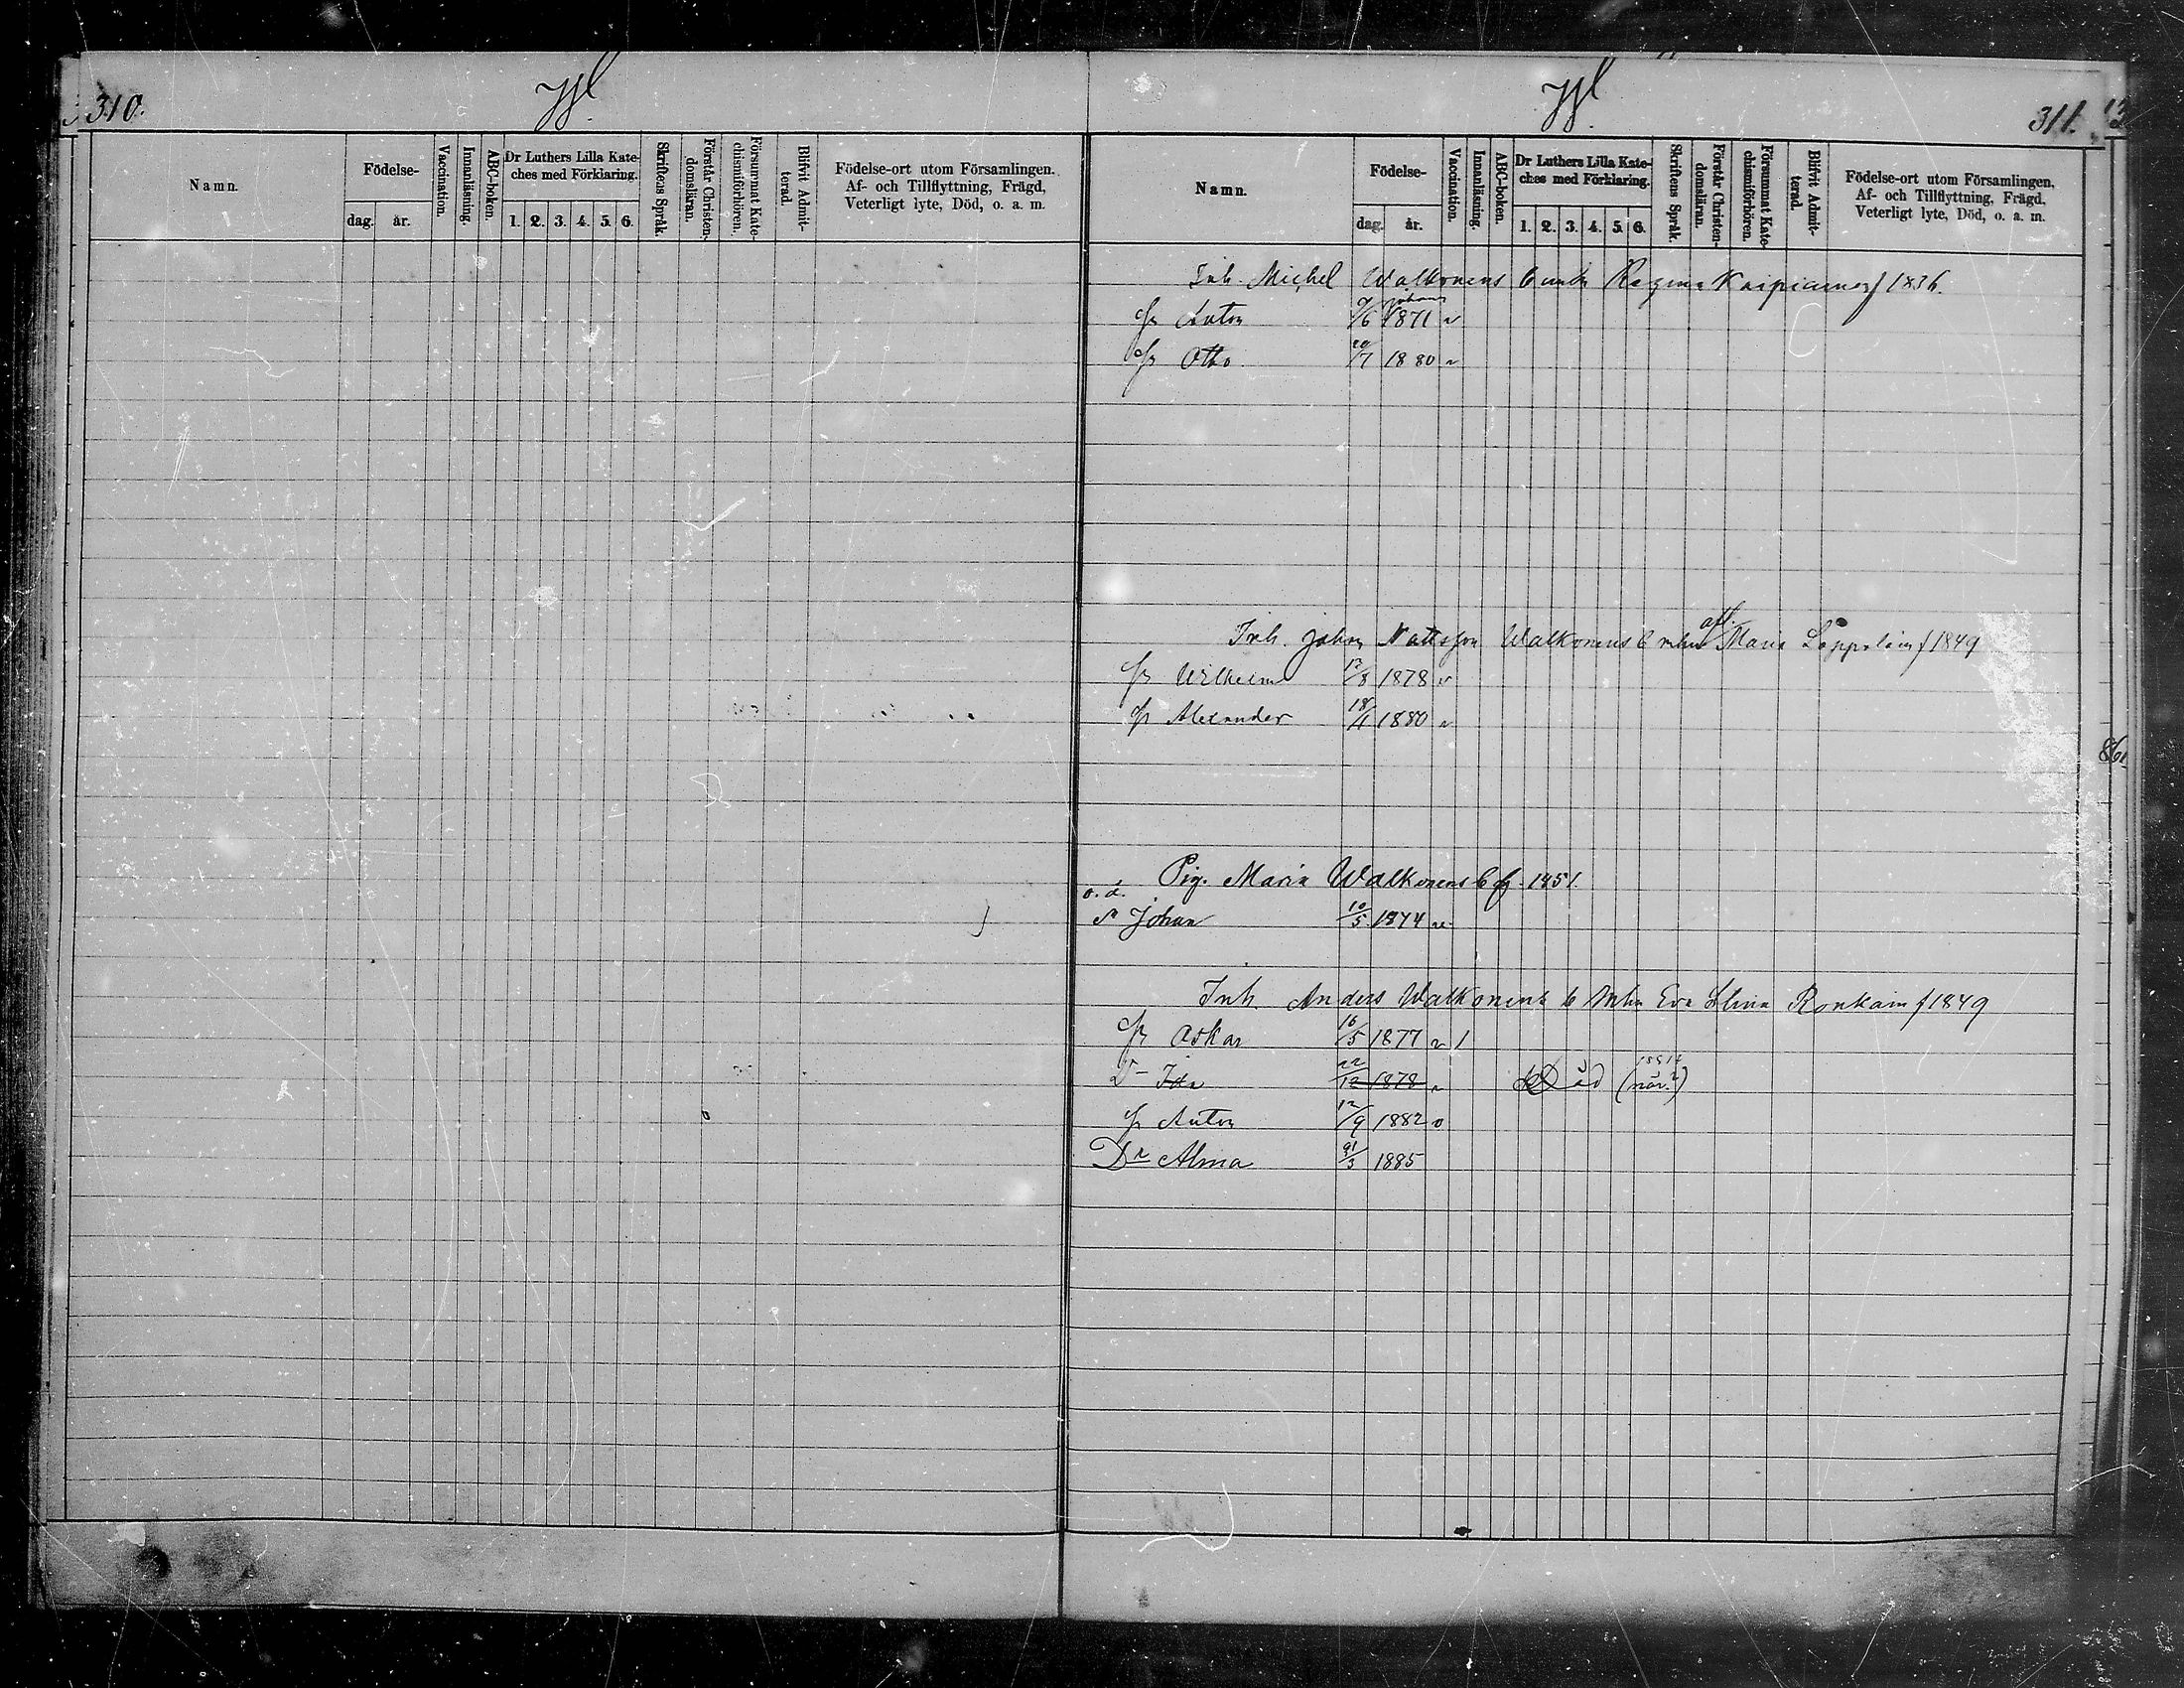 310.
Namn.
Födelse-
dag. år.
Vaccination.
Innanläsning.
ABC-boken.
Dr Luthers Lilla Kate-
ches med Förklaring.
1. 2. 3. 4. 5. 6.
Skriftens Språk.
Förstår Christen-
domsläran.
Försummat Kate-
chismiförhören.
Blifvit Admit-
terad.
Födelse-ort utom Församlingen.
Af- och Tillflyttning, Frägd,
Veterligt lyte, Död, o. a. m.
311.
Namn.
Födelse-
dag. år.
Vaccination.
Innanläsning.
ABC-boken.
Dr Luthers Lilla Kate-
ches med Förklaring.
1. 2. 3. 4. 5. 6.
Skriftens Språk.
Förstår Christen-
domsläran.
Försummat Kate-
chismiförhören.
Blifvit Admit-
terad.
Födelse-ort utom Församlingen,
Af- och Tillflyttning, Frägd,
Veterligt lyte, Död, o. a. m.
Inh. Michel Walkonens b Regina 1836.
Anton /6 1871
Otto 20/7 1880
Inh. Johan Walkonens b Maria f 1849
Wilhelm /8 1878
Alexander 18/ 1880
Pig. Maria Walkonens b f. 1851.
o. ä.
Johan 10/5 1874
Inh. Anders Walkonens b Eva f 1849
Oskar 16/5 1877
Ida 22/12 1878 Död
Anton 12/9 1882
Dr Alma /3 1885